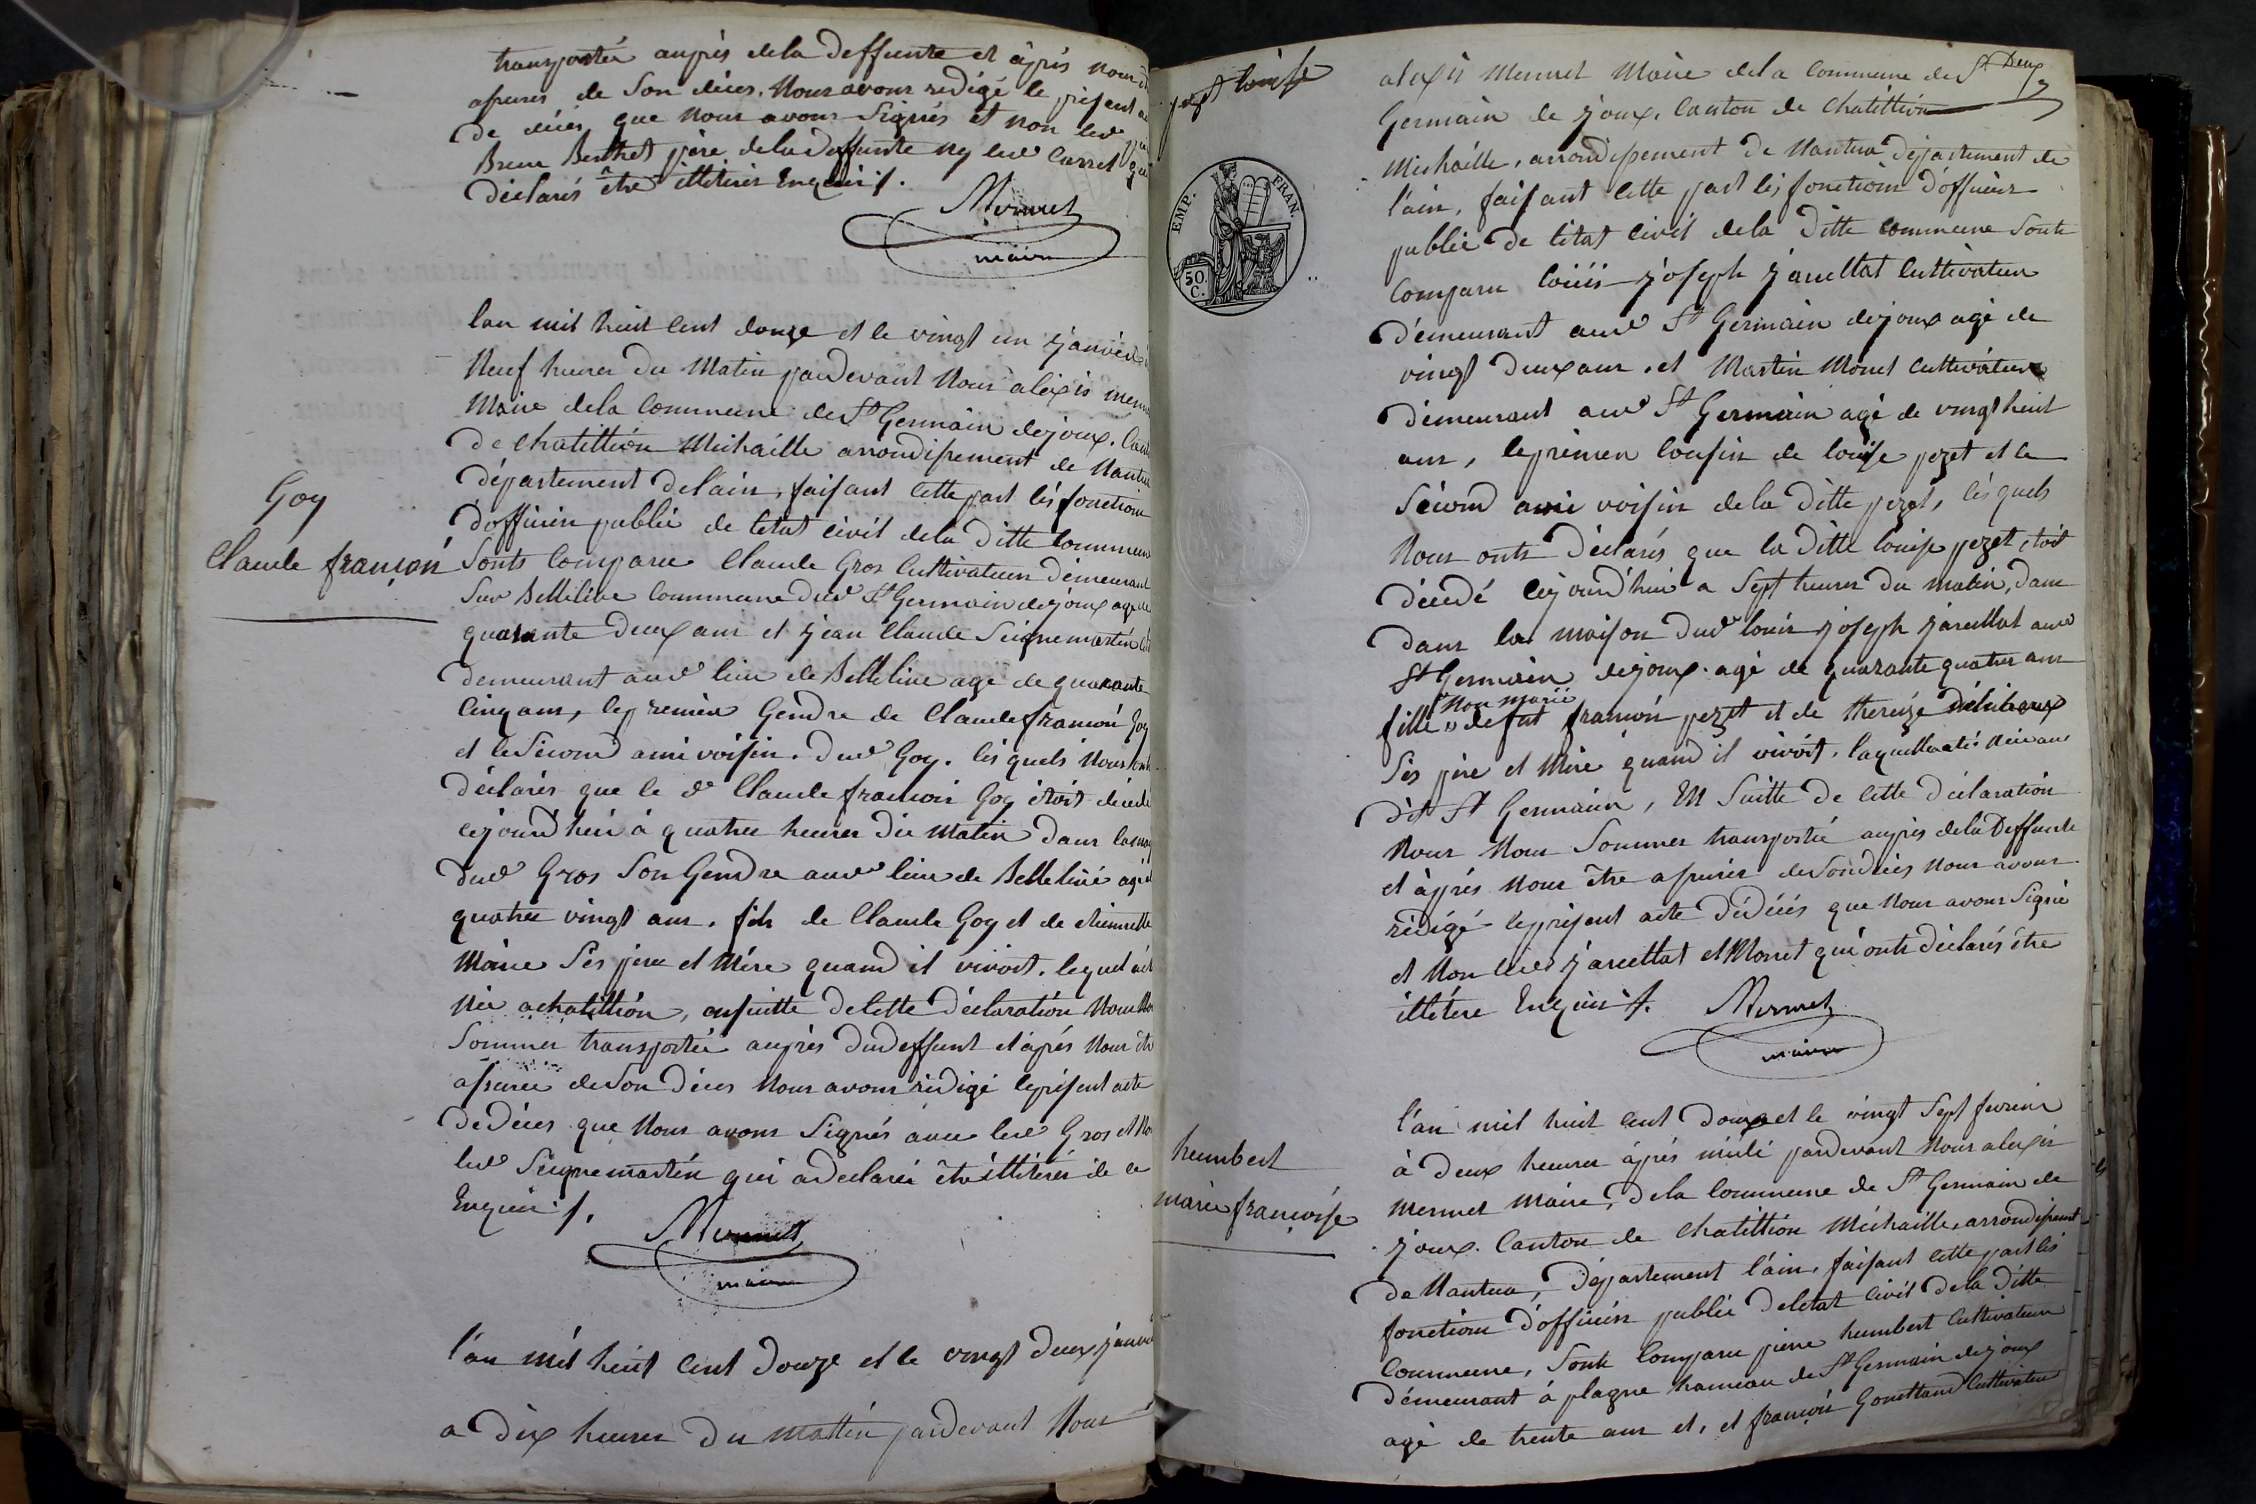 transportée auprès de la deffunte et àprés nous
assurés de son déces. Nous avons rédigé le présent
de déces que Nous avons Signés et non led
Berthet père de la deffunte ny led Carret qui
déclarés être illitérés Enquis /.
Mermet
maire
lan mil huit Cent douze et le vingt un Janvier
Neuf heures du Matin pardevant Nous alexis
Maire dela Commune de St Germain dejoux.
de chatillion Michaille arrondissement de Nantua
département del'ain, faisant Cette part les fonctions
d'officier public de létat civil dela ditte Commune
Goy
Claude françois
Sonts Comparu Claude Gros Cultivateur demeurant
Sur Belleline Commune dud St Germain dejoux agé de
quarante deux ans et jean Claude Seignemartin
demeurant aud lieu de Belleline age de quarante
Cinq ans, le premier Gendre de Claude francois Goy
et le Sécond ami voisin. dud Goy. lés quels Nous onts
déclarés que le d Claude francois Goy étoit décédé
cejourd'hui à quatre heures du Matin dans la
dud Gros Son Gendre aud lieu de Belleline agé
quatre vingt ans. fils de Claude Goy et de étiennette
Maire Sés père et Mére quand il vivoit. lequel
Née a chatillion, ensuitte decette déclaration Nous
Sommes transportée auprès dudeffunt et àprés Nous
assurée deson déces Nous avons rédigé leprésent acte
dedéces que Nous avons Signés avec led Gros et
led Seignemartin qui a declarée être illitérés de ce
Enquis /.
Mermet
maire
l'an mil huit Cent douze et le vingt deux
a dix heures du mattin pardevant Nous
pezet louise
alexis Mermet Maire dela Commune de St Deux
Germain de joux, Canton de Chatillion
Michaille, arrondissement de Nantua département de
l'ain, faisant Cette part lés fonctions d'officier
public de létat Civil dela ditte Commune Sonts
EMP. FRAN.
50. C.
Comparu louis joseph Cultivateur
démeurant aud St Germain dejoux agé de
vingt deux ans. et Martin Monet Cultivateur
démeurant aud St Germain agé de vingt huit
ans, le premier Cousin de louise pezet et le
Sécond ami voisin dela ditte pezet, lés quels
Nous onts déclarés que la ditte louise pezet étoit
décédé cejourd'hui a Sept heures du matin, dans
dans la maison dud louis joseph aud
St Germain dejoux. agé de quarante quatre ans
Non Marié
fille de fut francois pezet et de theréze
Sés père et Mére quand il vivoit. laquelle
dit St Germain, En Suitte de Cette déclaration
Nous Nous Sommes transportée auprès dela deffunte
et àprés Nous être assurés desondéces Nous avons
rédigé leprésent acte dédéces que Nous avons Signé
et Non led et Monet qui onts déclarés être
illétere Enquis /.
Mermet
maire
l'an mil huit Cent douze et le vingt Sept fevrier
à deux heures àprés midi pardevant Nous alexis
humbert
marie françoise
Mermet Maire, dela Commune de St Germain de
joux. Canton de Chatillion Michaille, arrondissement
de Nantua, département l'ain, faisant Cette part lés
fonctions d'officier public delétat Civil dela ditte
Commune, Sonts Comparu pierre humbert Cultivateur
démeurant à plagne hameau de St Germain dejoux
agé de trente ans et, et francois Cultivateur